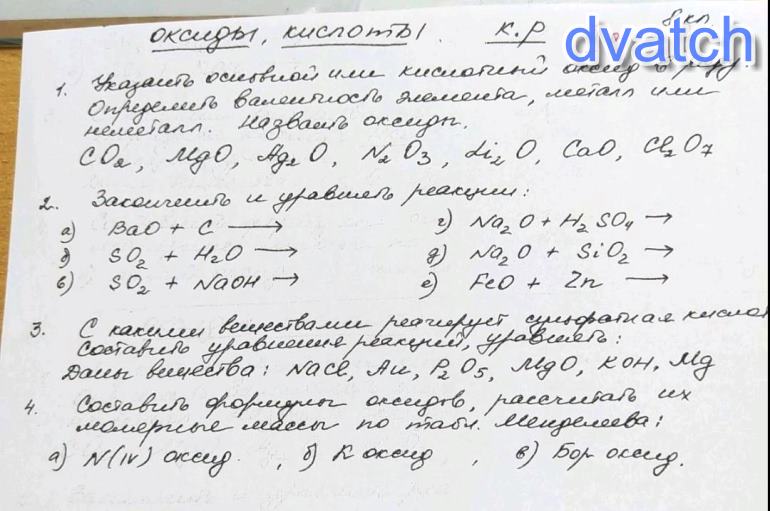 оксиды, кислоты. к.р 8 кл.
dvatch
1. Указать основной или кислотный оксид
Определить валентность элемента, металл или
неметалл. Назвать оксиды.
CO₂, MgO, Ag₂O, N₂O₃, Li₂O, CaO, Cl₂O₇
2. Закончить и уравнять реакции:
а) BaO + C → г) Na₂O + H₂SO₄ →
б) SO₂ + H₂O → д) Na₂O + SiO₂ →
в) SO₂ + NaOH → е) FeO + Zn →
3. С какими веществами реагирует сульфатная кислот
Составить уравнения реакций, уравнять:
Даны вещества: NaCl, Au, P₂O₅, MgO, KOH, Mg
4. Составить формулы оксидов, рассчитать их
молярные массы по табл. Менделеева:
а) N(IV) оксид, б) K оксид, в) Бор оксид.